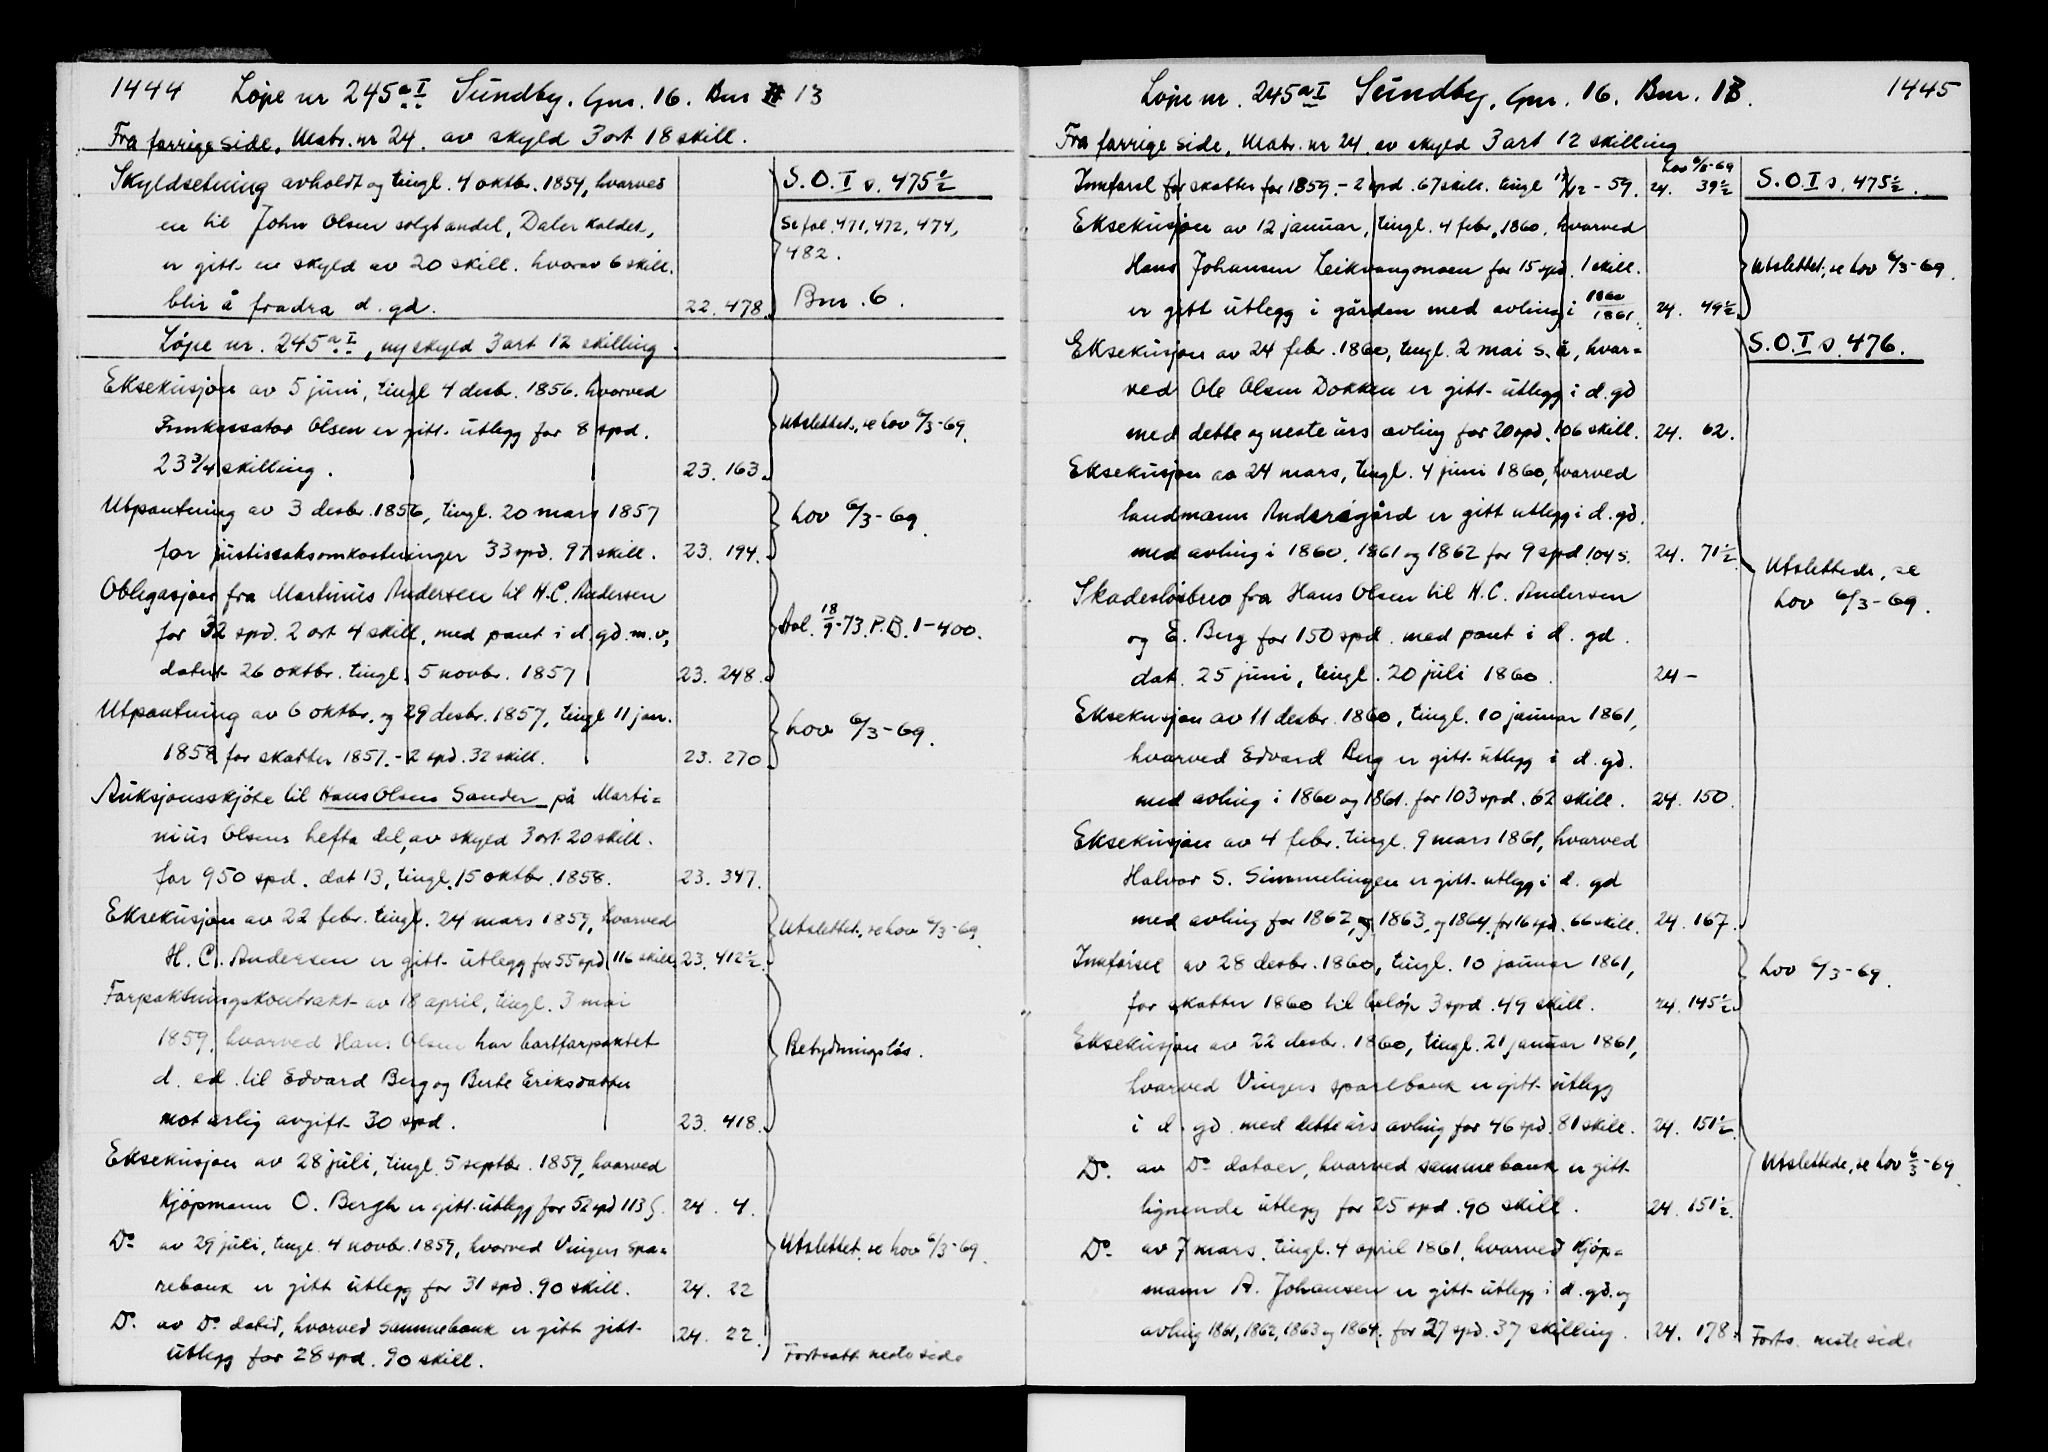 1444 Løpe nr 245 a I Sundby. Gnr. 16. Bnr 13
Fra forrige side, Matr. nr 24. av skyld 3 ort 18 skill.
Skyldsetning avholdt og tingl. 4 oktbr. 1854, hvorved
en til John Olsen solgt andel, Dalen kaldet,
er gitt en skyld av 20 skill. hvorav 6 skill.
blir å fradra d. gd. 22. 478.
S. O. I s. 475½
Se fol. 471, 472, 474,
482.
Bnr. 6.
Løpe nr. 245 a I, ny skyld 3 ort 12 skilling.
Eksekusjon av 5 juni, tingl 4 desb. 1856. hvorved
Innkassator Olsen er gitt utlegg for 8 spd.
23¾ skilling. 23. 163.
Utslettet, se lov 6/3-69.
Utpantning av 3 desbr. 1856, tingl. 20 mars 1857
for justissaksomkostninger 33 spd. 97 skill. 23. 194.
Lov 6/3-69.
Obligasjon fra Martinius Andersen til H.C. Andersen
for 32 spd. 2 ort 4 skill, med pant i d. gd. m.v,
datert 26 oktbr. tingl. 5 novbr. 1857 23. 248.
Avl. 18/9-73. P.B. 1-400.
Utpantning av 6 oktbr. og 29 desbr. 1857, tingl 11 jan.
1858 for skatter 1857. - 2 spd. 32 skill. 23. 270
Lov 6/3-69.
Auksjonsskjøte til Hans Olsen Sander på Marti=
nius Olsens hefta del, av skyld 3 ort 20 skill.
for 950 spd. dat 13, tingl. 15 oktbr. 1858. 23. 347.
Eksekusjon av 22 febr. tingl. 24 mars 1859, hvorved
H. C. Andersen er gitt utlegg for 55 spd 116 skill. 23. 412½.
Utslettet, se lov 6/3-69.
Forpaktningskontrakt av 18 april, tingl. 3 mai
1859, hvorved Hans Olsen har bortforpaktet
d. ed. til Edvard Berg og Berte Eriksdatter
mot arlig avgift 30 spd. 23. 418.
Betydningsløs.
Eksekusjon av 28 juli, tingl. 5 septbr. 1859, hvorved
Kjøpmann O. Bergh er gitt utlegg for 52 spd 113 s. 24. 4.
Do av 29 juli, tingl. 4 novbr. 1859, hvorved Vingers Spa=
rebank er gitt utlegg for 31 spd. 90 skill. 24. 22
Utslettet, se lov 6/3-69.
Do. av Do datis, hvorved samme bank er gitt gitt
utlegg for 28 spd. 90 skill. 24. 22.
Fortsatt neste side
Løpe nr. 245 a I Sundby, Gnr. 16. Bnr. 13. 1445
Fra forrige side, Matr. nr 24 av skyld 3 ort 12 skilling
Innførsel for skatter for 1859. - 2 spd. 67 skill. tingl 17/12 - 59. 24. 39½
Lov 6/3-69
S.O.I s. 475½.
Eksekusjon av 12 januar, tingl. 4 febr. 1860, hvorved
Hans Johansen Leikvangmoen for 15 spd. 1 skill.
er gitt utlegg i gården med avling i 1860/1861. 24. 49½
Utslettet, se lov 6/3-69.
S.O.I s. 476.
Eksekusjon av 24 febr. 1860, tingl. 2 mai s. å, hvor=
ved Ole Olsen Dokken er gitt utlegg i d. gd
med dette og neste års avling for 20 spd. 106 skill. 24. 62.
Eksekusjon av 24 mars, tingl. 4 juni 1860, hvorved
landmann Andersgård er gitt utlegg i d. gd.
med avling i 1860. 1861 og 1862 for 9 spd. 104 s. 24. 71½.
Utslettede, se
lov 6/3-69.
Skadesløsbrev fra Hans Olsen til H.C. Andersen
og E. Berg for 150 spd. med pant i d. gd.
dat. 25 juni, tingl. 20 juli 1860. 24 -
Eksekusjon av 11 desbr. 1860, tingl. 10 januar 1861,
hvorved Edvard Berg er gitt utlegg i d. gd.
med avling i 1860 og 1861. for 103 spd. 62 skill. 24. 150.
Eksekusjon av 4 febr. tingl. 9 mars 1861, hvorved
Halvor S. Simmelingen er gitt utlegg i d. gd
med avling for 1862, og 1863, og 1864. for 16 spd. 66 skill. 24. 167.
Innførsel av 28 desbr. 1860, tingl. 10 januar 1861,
for skatter 1860 til beløp 3 spd. 49 skill. 24. 145½.
Lov 6/3-69.
Eksekusjon av 22 desbr. 1860, tingl. 21 januar 1861,
hvorved Vingers sparebank er gitt utlegg
i d. gd. med dette års avling for 46 spd. 81 skill. 24. 151½.
Do. av Do datoer, hvorved samme bank er gitt
lignende utlegg for 25 spd. 90 skill. 24. 151½.
Utslettede, se lov 6/3-69.
Do. av 7 mars, tingl. 4 april 1861, hvorved Kjøp=
mann A. Johansen er gitt utlegg i d. gd. og
avling 1861, 1862, 1863 og 1864. for 27 spd. 37 skilling. 24. 178.
Forts. neste side